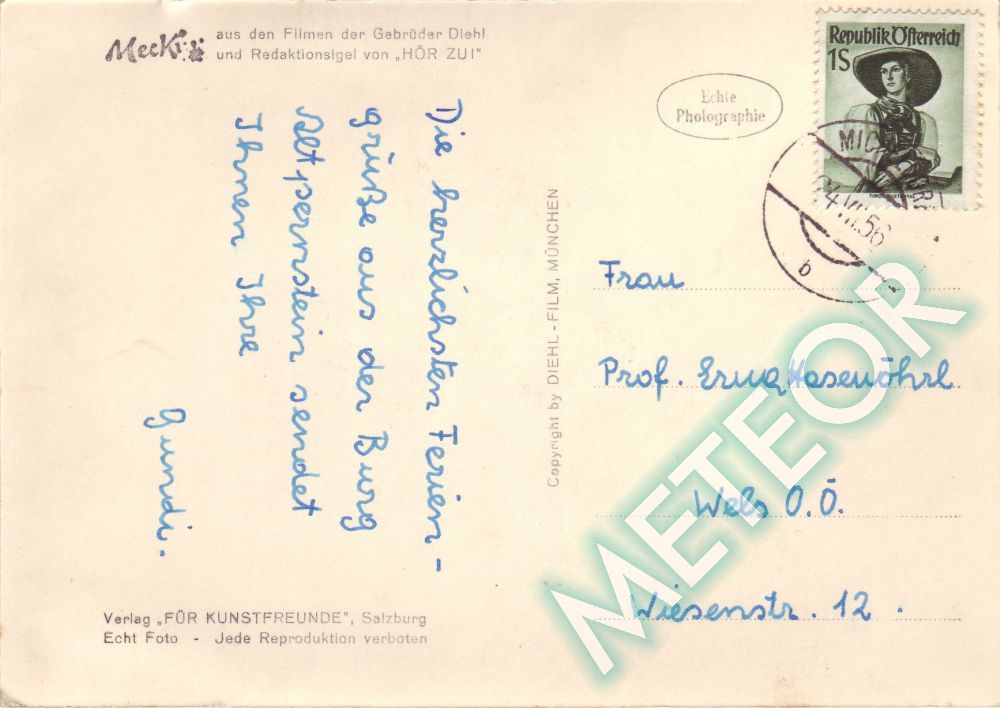 Mecki aus den Filmen der Gebrüder Diehl
und Redaktionsigel von „HÖR ZU!"
Die herzlichsten Ferien-
grüße aus der Burg
Altpernstein sendet
Ihnen Ihre
Gundi.
Verlag „FÜR KUNSTFREUNDE", Salzburg
Echt Foto - Jede Reproduktion verboten
Copyright by DIEHL - FILM, MÜNCHEN
Echte
Photographie
Republik Österreich
1S
b
Frau
Prof. Erna Hasenöhrl
Wels O.Ö.
Wiesenstr. 12.
METEOR